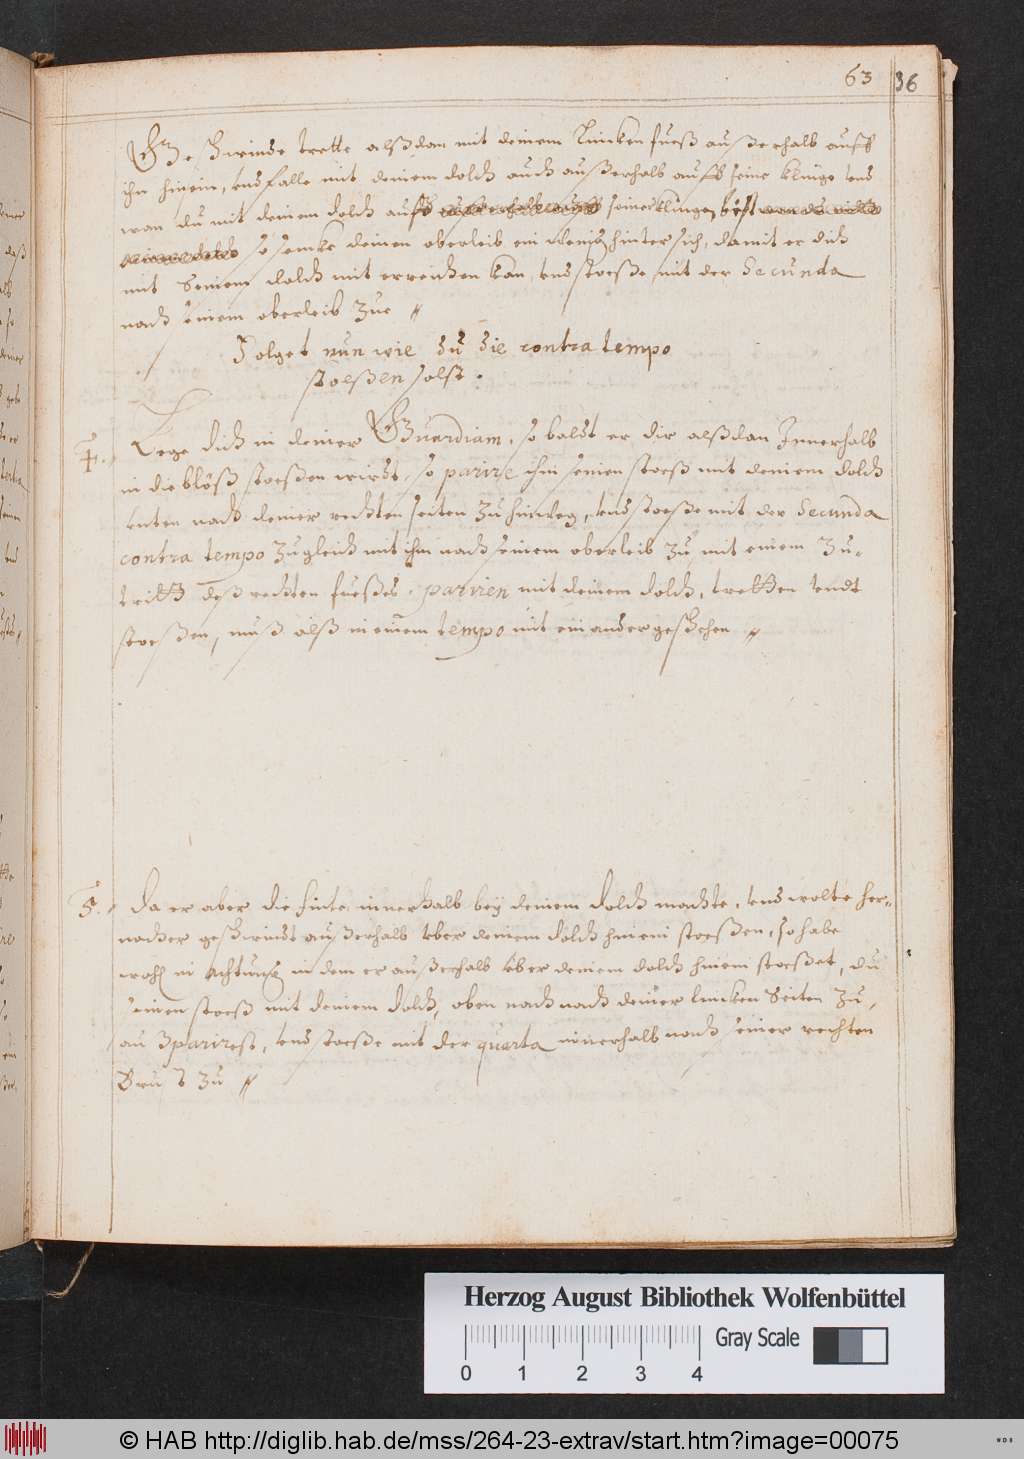 63 36
Geschwinde trette alßdan mit deinem Lincken fueß außerhalb auff
ihn hinein, vnd falle mit deinem dolch auch außerhalb auff seine klinge vnd
wan du mit deinem dolch auff seiner klingen bist
so sencke deinen oberleib ein wenig hinter sich, damit er dich
mit seinem dolch nit erreichen kan, vnd stoeße mit der Secunda
nach seinem oberleib zue
Folget nun wie du die contra tempo
stoeßen solst.
4. Lege dich in deiner Guardiam, so baldt er dir alßdan Innerhalb
in die blöß stoeßen wirdt, so parire ihm seinen stoeß mit deinem dolch
vnten nach deiner rechten seiten zu hinweg, vnd stoeße mit der Secunda
contra tempo zugleich mit ihm nach seinem oberleib zu, mit einem zu-
tritt deß rechten fueßes. pariren mit deinem dolch, tretten vndt
stoeßen, muß alß in einem tempo mit ein ander geschehen
5. Da er aber die finte innerhalb bey deinem dolch machte, vnd wolte her-
nacher geschwindt außerhalb vber deinem dolch hinein stoeßen, so habe
wohl in achtung in dem er außerhalb vber deinem dolch hinein stoeßet, du
seinen stoeß mit deinem dolch, oben nach deiner lincken Seiten zu,
parirest, vnd stoeße mit der quarta innerhalb nach seiner rechten
Brust zu
Herzog August Bibliothek Wolfenbüttel
Gray Scale
0 1 2 3 4
© HAB http://diglib.hab.de/mss/264-23-extrav/start.htm?image=00075